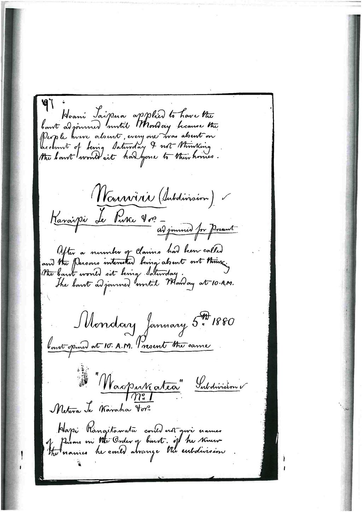 97
Hoani Taipua applied to have the
Court adjourned until Monday because the
People were absent, every one was absent on
account of being Saturday & not thinking
the Court would sit had gone to their homes.
Wawiri (Subdivision)
Karaipi Te Puke & ors
adjourned for Present
After a number of claims had been called
and the Persons interested being absent not thinking
the Court would sit being Saturday.
The Court adjourned until Monday at 10 A.M.
Monday January 5th 1880
Court opened at 10. A.M. Present the same
" " Subdivision
No 1
Metera Te Karaha & ors
Hapi Rangitawatu could not give names
of Persons in the Order of Court, if he knew
the names he could arrange the subdivision